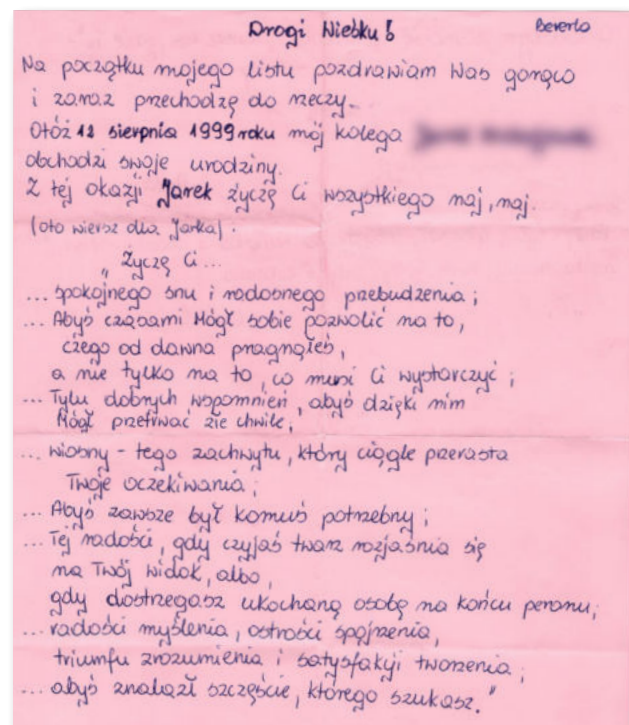 Drogi Niebku!
Beverlo
Na początku mojego listu pozdrawiam Was gorąco
i zaraz przechodzę do rzeczy.
Otóż 12 sierpnia 1999 roku mój kolega
obchodzi swoje urodziny.
Z tej okazji Jarek życzę Ci wszystkiego naj, naj.
(oto wiersz dla Jarka).
"Życzę Ci...
... spokojnego snu i radosnego przebudzenia;
... Abyś czasami Mógł sobie pozwolić na to,
czego od dawna pragnąłeś,
a nie tylko na to, co musi Ci wystarczyć;
... Tylu dobrych wspomnień, abyś dzięki nim
Mógł przetrwać złe chwile;
... wiosny - tego zachwytu, który ciągle przerasta
Twoje oczekiwania;
... Abyś zawsze był komuś potrzebny;
... Tej radości, gdy czyjaś twarz rozjaśnia się
na Twój widok, albo,
gdy dostrzegasz ukochaną osobę na końcu peronu;
... radości myślenia, ostrości spojrzenia,
triumfu zrozumienia i satysfakcji tworzenia;
... abyś znalazł szczęście, którego szukasz."